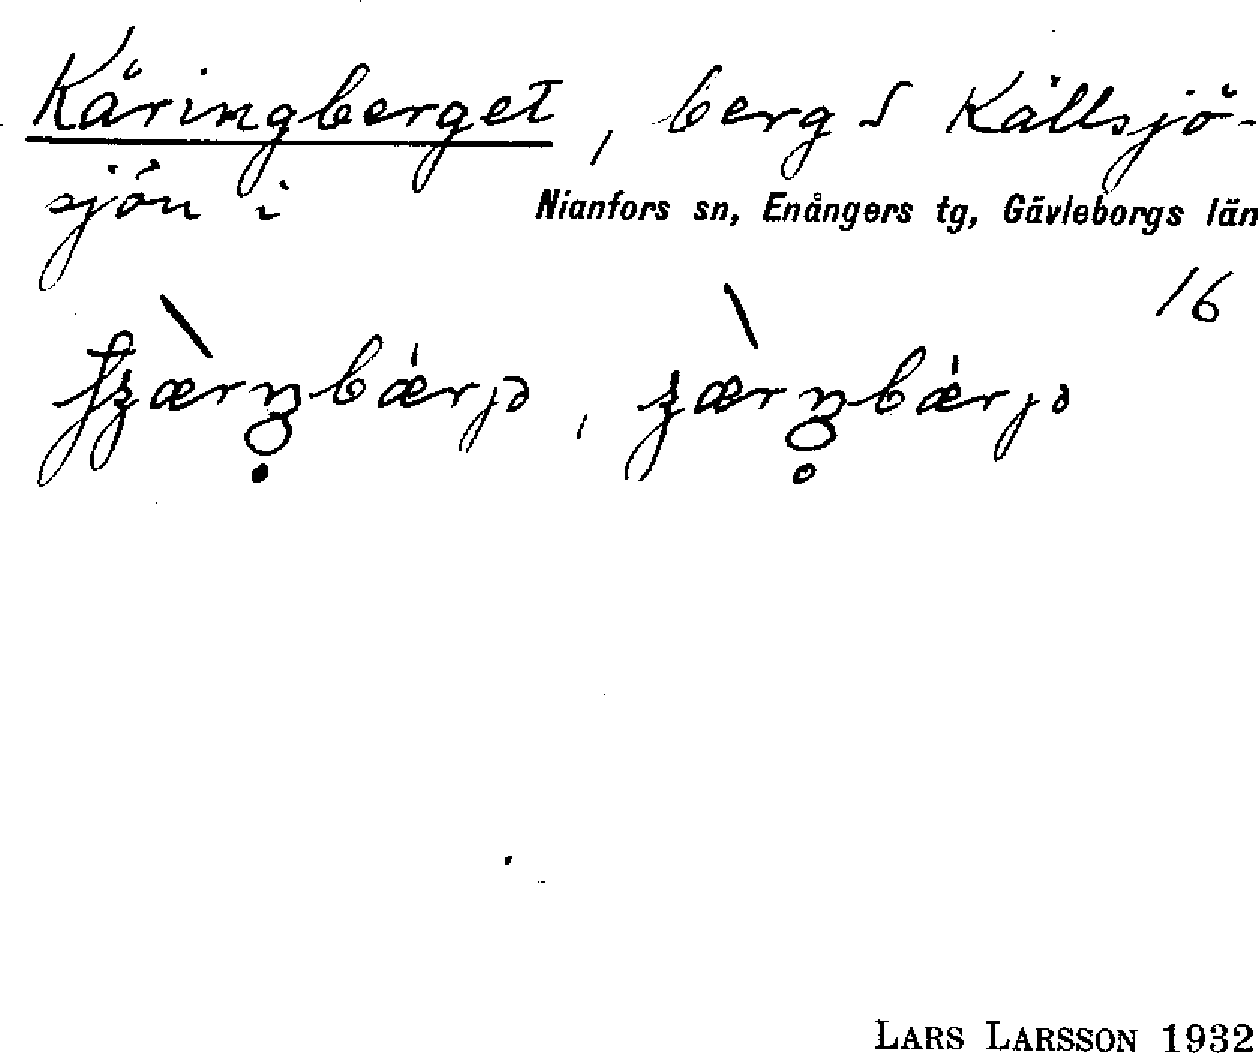 Käringberget, berg S Källsjö-
sjön i Nianfors sn, Enångers tg, Gävleborgs län
16
LARS LARSSON 1932